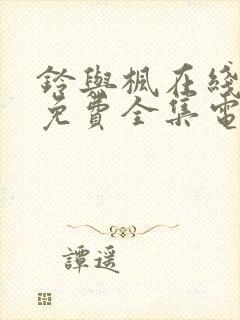 鈴與楓在綫
免費全集電
譚遥